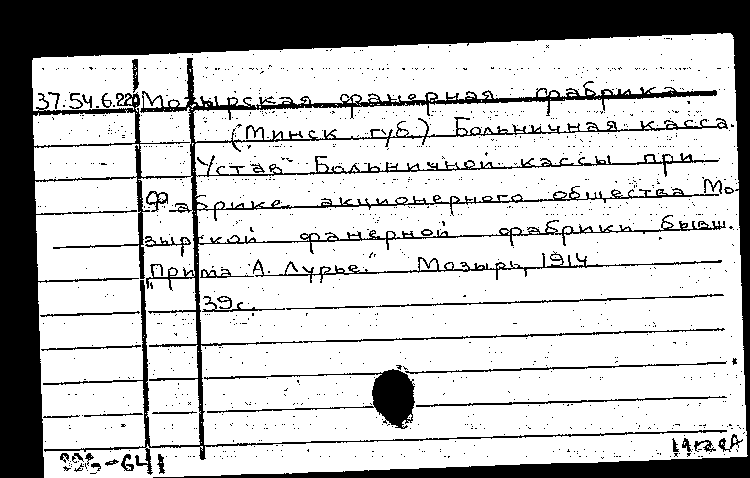 37.54.6.220 Мозырская фанерная фабрика.
(Минск. губ.) Больничная касса.
Уставъ Больничной кассы при
Фабрике акционерного общества Мо-
зырской фанерной фабрики, бывш.
„Прима А. Лурье." Мозырь, 1914.
39с.
641